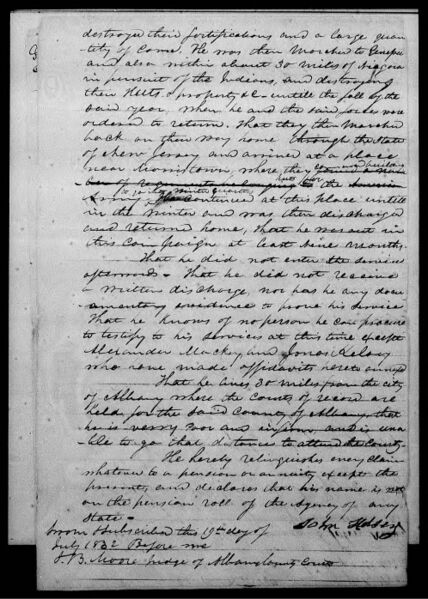 destroyed their fortifications and a large quan
tity of Corn. He was then Marched to Genesee
and also within about 30 miles of Niagara
in pursuit of the Indians, and destroying
their Hutts & property &c. untill the fall of the
said year, when he and the said forces were
ordered to return. That they then Marched
back on their way home through the State
of New Jersey and arrived at a place
near Morristown, where they
to the
Army, continued at this place untill
in the Winter and was then discharged
and returned home, that he was out in
this Campaign at least nine months.
That he did not enter the service
afterwards. That he did not receive
a written discharge, nor has he any docu
mentary evidence to prove his service
That he knows of no person he can procure
to testify to his services at this time except
Alexander Mackey and Jonas
who have made affidavits hereto annexed
That he lives 30 miles from the city
of Albany where the Courts of record are
held for the said County of Albany, that
he is verry Poor and infirm and is una
ble to go that distance to attend the County
He hereby relinquishes every claim
whatever to a pension or annuity except the
present, and declares that his name is not
on the pension roll of the Agency of any
State.
Sworn & Subscribed this 19th day of
John
July 1832 Before me
J. B. Moore Judge of Albany County Courts